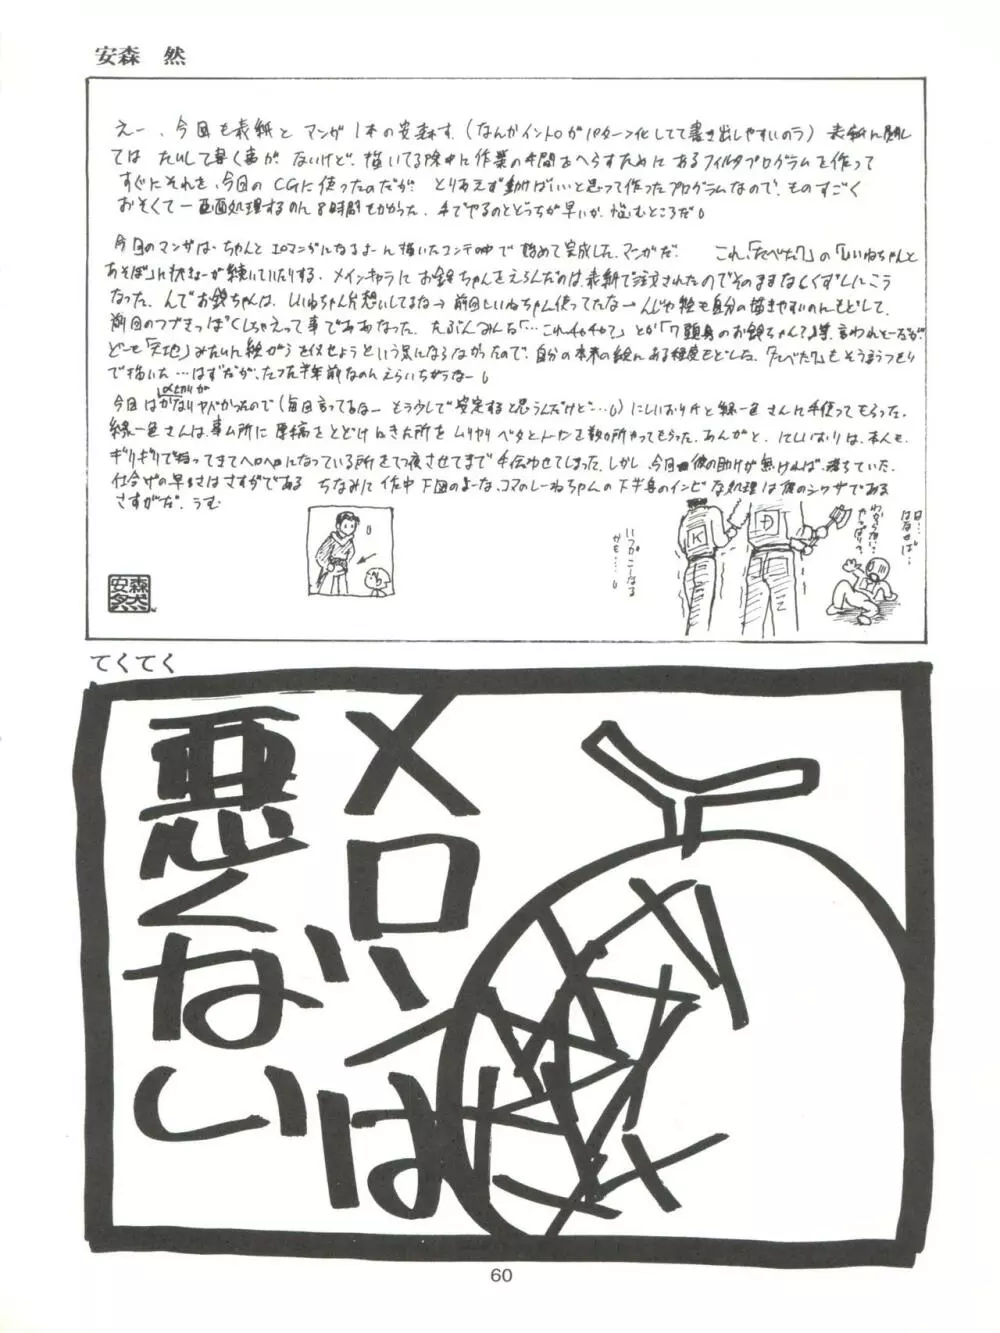 安森 然
えー、今回も表紙と マンガ1本の安森す。(なんかイントロがパターン化してて書き出しやすいのラ) 表紙に関し
ては たいして書く事が ないけど、描いてる際中に作業の手間をへらすために あるフィルタプログラムを作って
すぐにそれを、今回の CGに使ったのだが とりあえず動けばいいと思って作ったプログラムなので、ものすごく
おそくて一画面処理するのに8時間もかかった。手でやるのとどっちが早いか、悩むところだ。
今回のマンガは、ちゃんと エロマンガになるよーに描いたコンテの中で 始めて完成した、マンガだ。 これ、「たべた?」の「しいねちゃんと
あそぼ」に 続いていたりする。メインキャラに お鈴ちゃんをえらんだのは、表紙で注文されたのでそのままなしくずしにこう
なった。んでお鈴ちゃんは、しいねちゃん片想いしてるな→前回しいねちゃん使ってたな→んじゃ絵も自分の描きやすいのにもどして、
前回のつづきっぽくしちゃえって事でああなった。たぶんみんな「…これチャチャ?」とか「7頭身のお鈴ちゃんて」等、言われそーだが、
どーも「天地」みたいに絵がらを似せようという気にならなかったので、自分の本来の絵にある程度もどした。「たべた?」もそうまうつもり
で描いた…はずだが、たった半年前なのにえらいちがうなー。
〆切りが
今回はかなりヤバかったので(毎回言ってるなー もう少しで安定すると思うんだけど…。)にしいおり氏と緑一色さんに手伝ってもらった。
緑一色さんは、事ム所に原稿をとどけにきた所を ムリヤリ ベタとトーンを数ヶ所やってもらった。あんがと。にしいおりは、本人も、
ギリギリで持ってきてヘロヘロになっている所をてつ夜させてまで 手伝わせてしまった。しかし、今回 彼の助けが無ければ、落ちていた。
仕上げの早さはさすがである ちなみに 作中 下図のよーな、コマのしーねちゃんの下半身のインビな処理は彼のシワザである
さすがだ。うむ
いつかこーなる
かも……。
K
D
日…
はなせば…
わからない…
やっぱり?
安森
然
てくてく
メロンは
悪くない
60